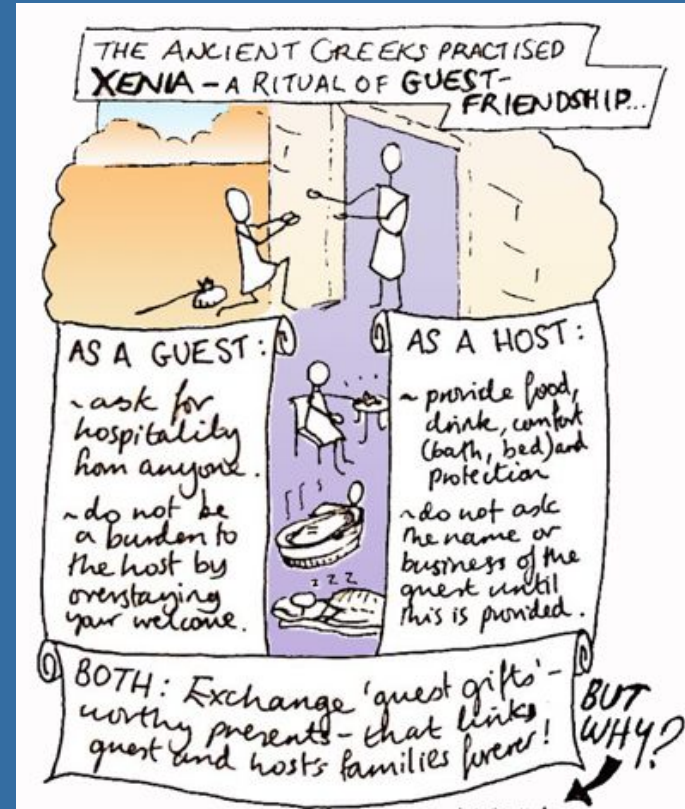 THE ANCIENT GREEKS PRACTISED
XENIA – A RITUAL OF GUEST-
FRIENDSHIP...
AS A GUEST:
~ask for
hospitality
from anyone.
~do not be
a burden to
the host by
overstaying
your welcome.
AS A HOST:
~ provide food,
drink, comfort
(bath, bed) and
protection
~do not ask
the name or
business of the
guest until
this is provided.
z z z
BOTH: Exchange 'guest gifts' –
worthy presents – that links
guest and hosts families forever!
BUT
WHY?